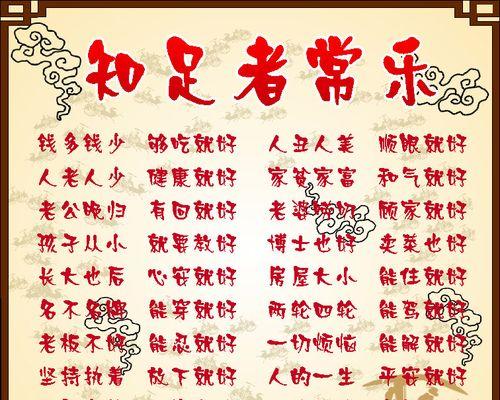 知足者常乐
钱多钱少 够吃就好 人丑人美 顺眼就好
人老人少 健康就好 家穷家富 和气就好
老公晚归 有回就好 老婆唠叨 顾家就好
孩子从小 就要教好 博士也好 卖菜也好
长大也后 心安就好 房屋大小 能住就好
名不名牌 能穿就好 两轮四轮 能驾就好
老板不好 能忍就好 一切烦恼 能解就好
坚持执着 放下就好 人的一生 平安就好